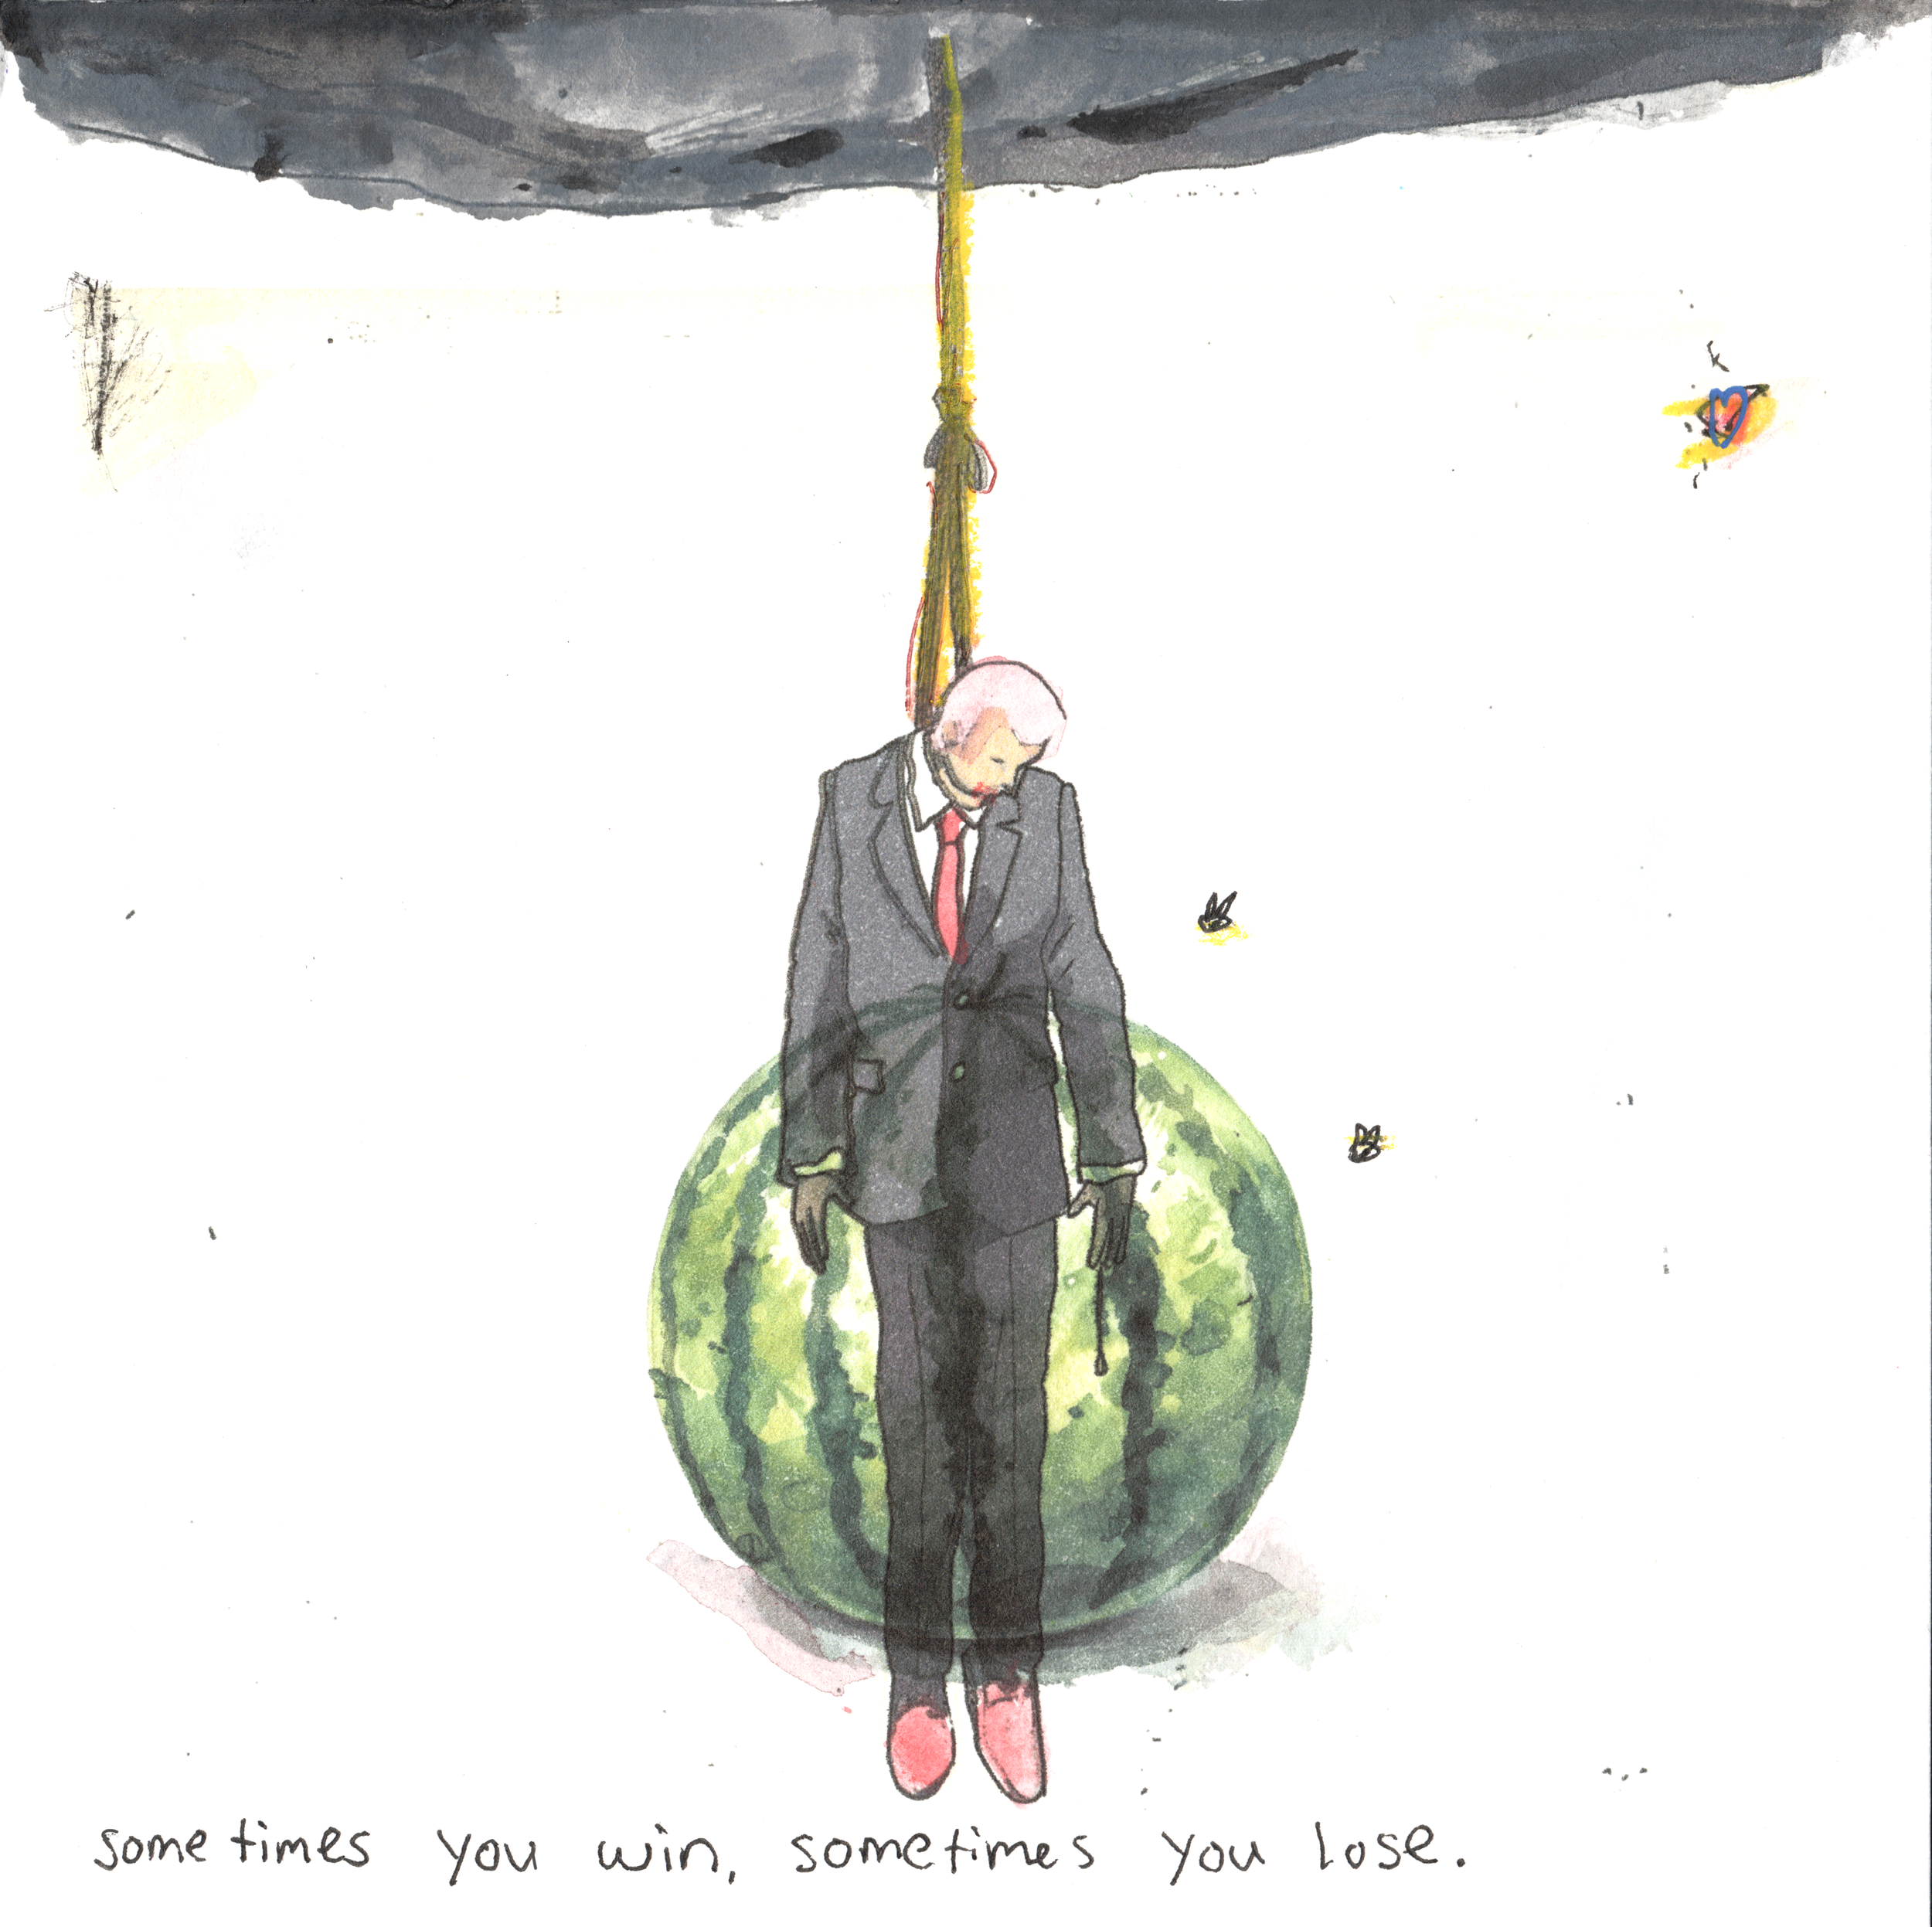 sometimes you win, sometimes you lose.